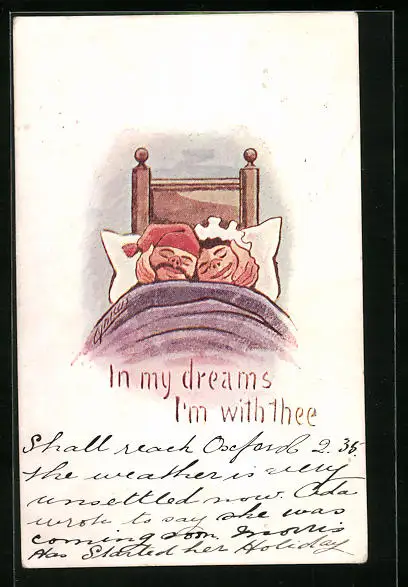 In my dreams
I'm with thee
Shall reach Oxford 2.35
the weather is very
unsettled now. Ada
wrote to say she was
coming soon. Morris
Has Started her Holiday